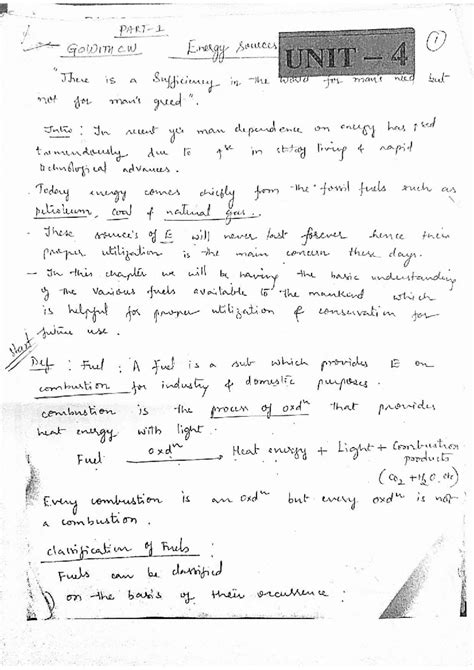 PART-1
GOWITHCW Energy Sources UNIT - 4 1
"There is a Sufficiency in the World for man's need but
not for man's greed".
Intro : In recent yrs man dependence on energy has ↑sed
tremendously due to ↑se in living & rapid
technological advances.
- Today energy comes chiefly from the fossil fuels such as
petroleum, coal & natural gas.
- These source's of E will never last forever hence their
proper utilization is the main concern these days.
- In this chapter we will be having the basic understanding
of the various fuels available to the mankind which
is helpful for proper utilization & conservation for
future use.
Start
Def : Fuel : A fuel is a sub which provides E on
combustion for industry & domestic purposes.
combustion is the process of oxdn that provides
heat energy with light.
Fuel oxdn → Heat energy + Light + Combustion
products
(CO2 + H2O etc)
Every combustion is an oxdn but every oxdn is not
a combustion.
classification of Fuels :
Fuels can be classified
on the basis of their occurrence :